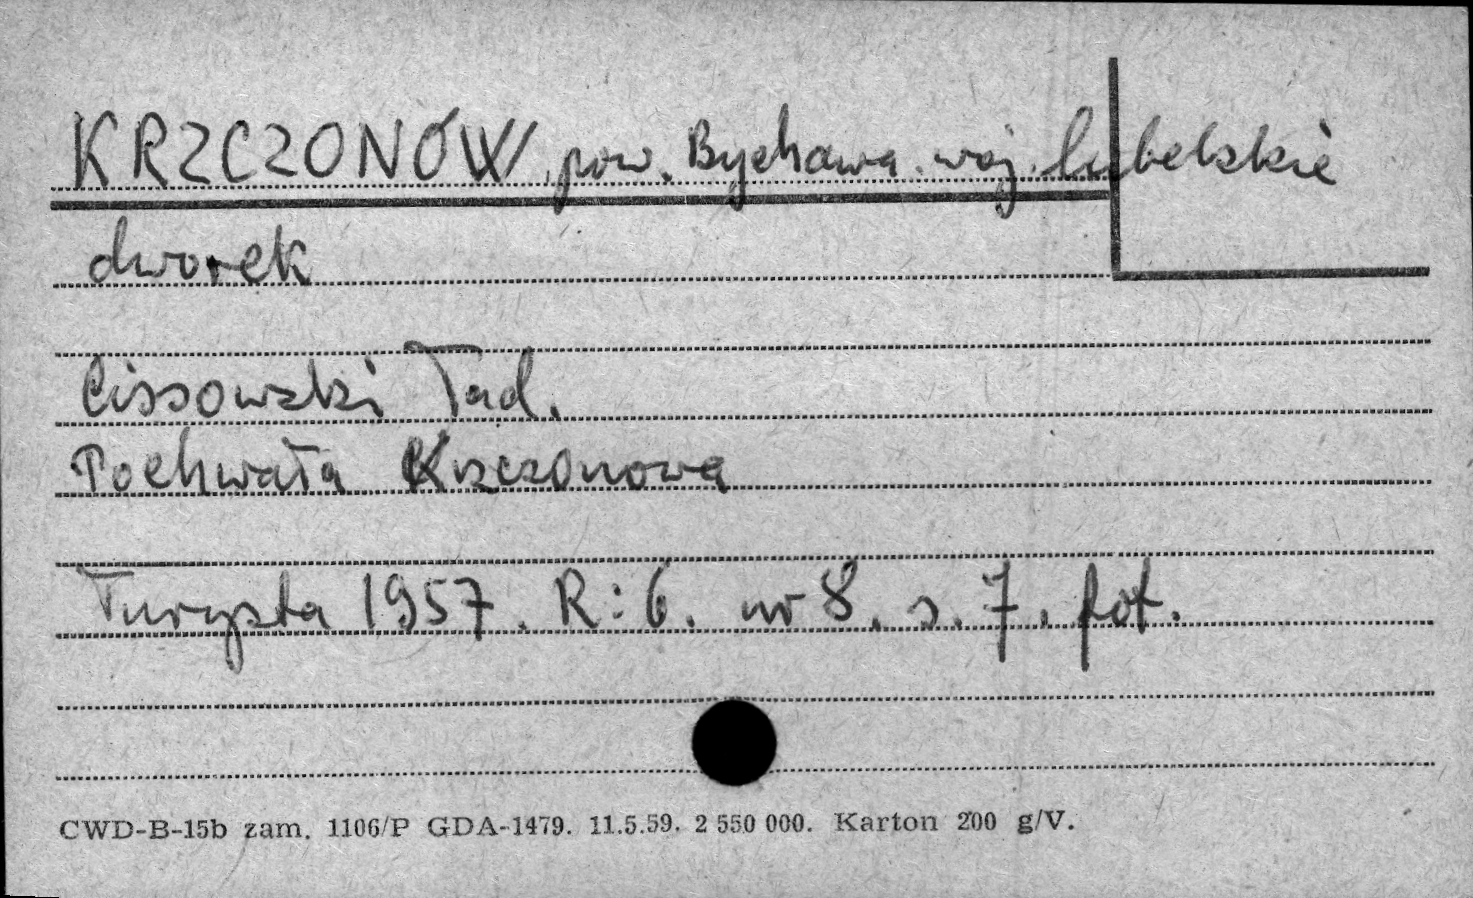 KRZCZONÓW, pow. Bychawa. woj. lubelskie
dworek
Cissowski Tad.
Pochwała Krzczonowa
Turysta 1957. R: 6. nr 8. s. 7. fot.
CWD-B-15b zam. 1106/P GDA-1479. 11.5.59. 2 550 000. Karton 200 g/V.